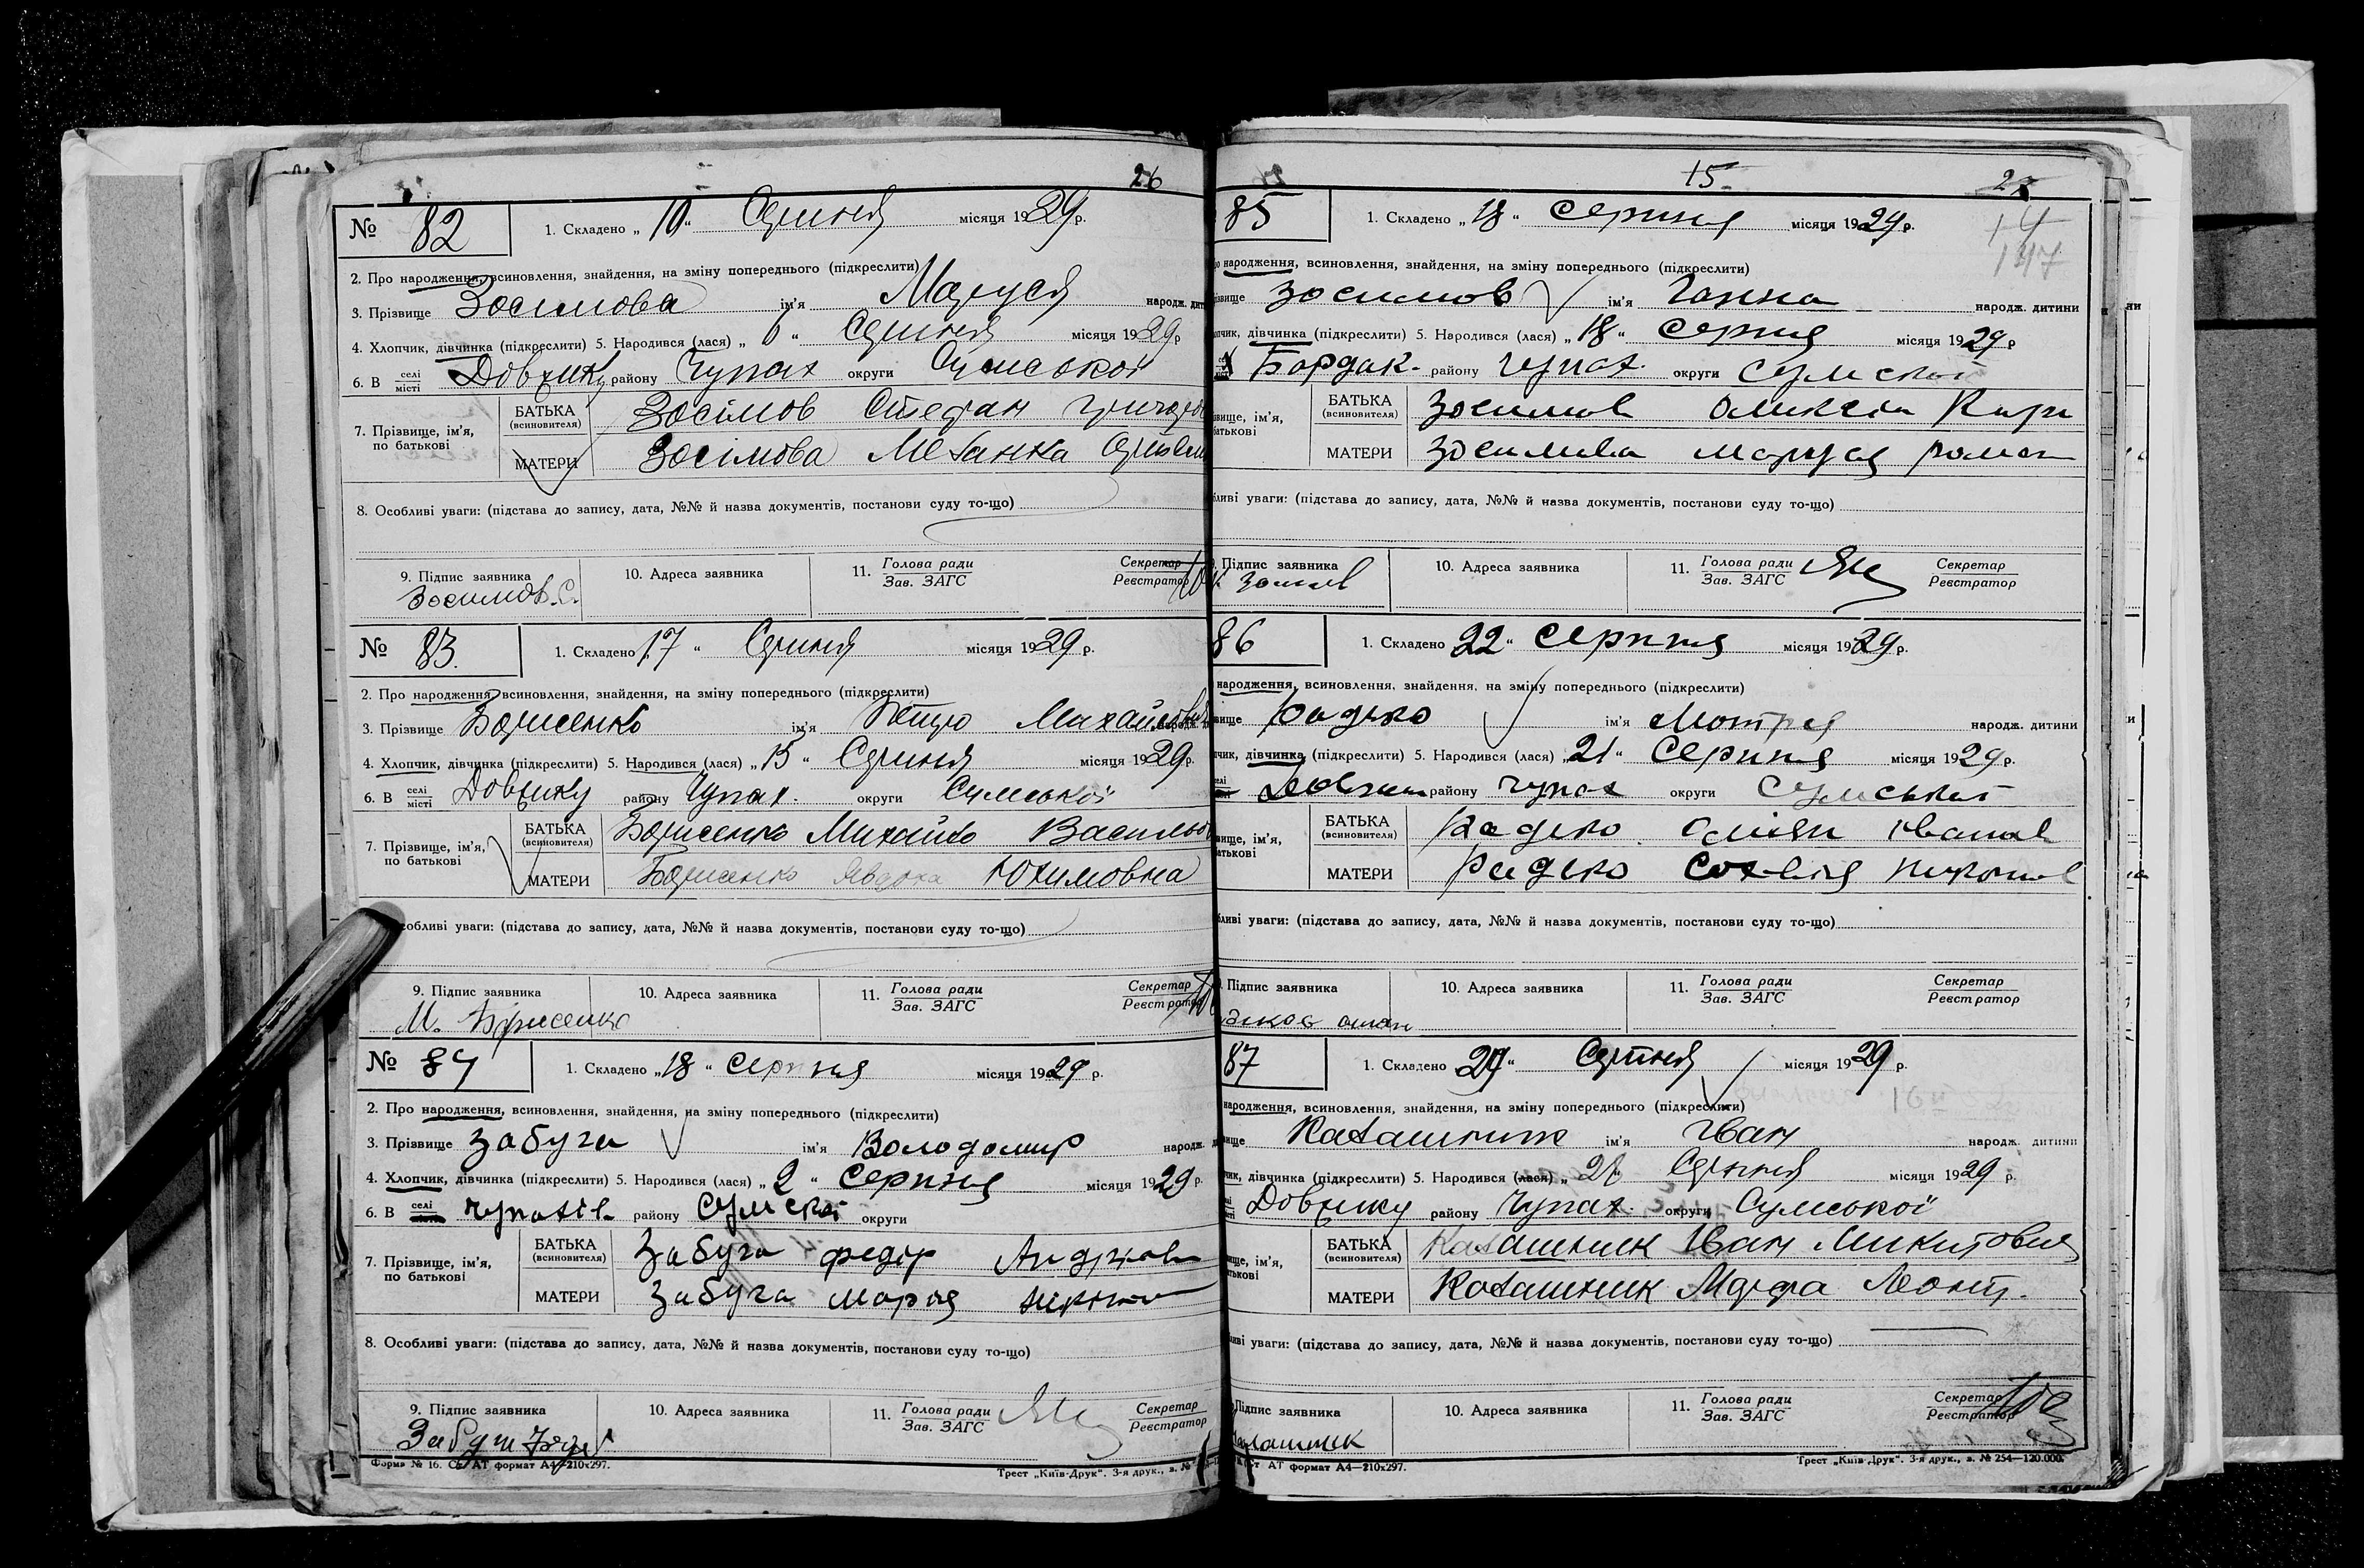 26
№ 82
1. Складено „10“ Серпня місяця 1929 р.
2. Про народження, всиновлення, знайдення, на зміну попереднього (підкреслити)
3. Прізвище Зосимова ім'я Маруся народж. дит
4. Хлопчик, дівчинка (підкреслити) 5. Народився (лася) „6“ Серпня місяця 1929 р
6. В селі місті Довжику району Чупах округи Сумської
7. Прізвище, ім'я, по батькові
БАТЬКА (всиновителя) Зосімов Стефан Григоров
МАТЕРИ Зосімова Меланка
8. Особливі уваги: (підстава до запису, дата, №№ й назва документів, постанови суду то-що)
9. Підпис заявника 10. Адреса заявника 11. Голова ради Зав. ЗАГС Секретар Реєстратор
Зосимов. С.
№ 83.
1. Складено „17“ Серпня місяця 1929 р.
2. Про народження, всиновлення, знайдення, на зміну попереднього (підкреслити)
3. Прізвище Борисенко ім'я Петро Михайлович народж. д
4. Хлопчик, дівчинка (підкреслити) 5. Народився (лася) „15“ Серпня місяця 1929 р.
6. В селі місті Довжику району Чупах. округи Сумської
7. Прізвище, ім'я, по батькові
БАТЬКА (всиновителя) Борисенко Михайло Васильов
МАТЕРИ Борисенко Явдоха Юхимовна
собливі уваги: (підстава до запису, дата, №№ й назва документів, постанови суду то-що)
9. Підпис заявника 10. Адреса заявника 11. Голова ради Зав. ЗАГС Секретар Реєстратор
М. Борисенко
№ 84
1. Складено „18“ серпня місяця 1929 р.
2. Про народження, всиновлення, знайдення, на зміну попереднього (підкреслити)
3. Прізвище Забуга ім'я Володомир народж. д
4. Хлопчик, дівчинка (підкреслити) 5. Народився (лася) „2“ серпня місяця 1929 р.
6. В селі місті Чупахів. району Сумской округи
7. Прізвище, ім'я, по батькові
БАТЬКА (всиновителя) Забуга федір Андржов
МАТЕРИ Забуга Мария
8. Особливі уваги: (підстава до запису, дата, №№ й назва документів, постанови суду то-що)
9. Підпис заявника 10. Адреса заявника 11. Голова ради Зав. ЗАГС Секретар Реєстратор
Забуга
Форма № 16. Ст. АТ формат А4—210x297.
Трест „Київ-Друк“. 3-я друк., з. №
15
27
14
147
85
1. Складено „18“ серпня місяця 1929 р.
народження, всиновлення, знайдення, на зміну попереднього (підкреслити)
звище Зосимов ім'я Ганна народж. дитини
пчик, дівчинка (підкреслити) 5. Народився (лася) „18“ серпня місяця 1929 р
Бордак. району Чупах. округи Сумской
звище, ім'я, батькові
БАТЬКА (всиновителя) Зосимов Оликсій Кири
МАТЕРИ Зосимова Маруся роман
бливі уваги: (підстава до запису, дата, №№ й назва документів, постанови суду то-що)
Підпис заявника 10. Адреса заявника 11. Голова ради Зав. ЗАГС Секретар Реєстратор
86
1. Складено „22“ Серпня місяця 1929 р.
народження, всиновлення, знайдення, на зміну попереднього (підкреслити)
вище Радько ім'я Мотря народж. дитини
пчик, дівчинка (підкреслити) 5. Народився (лася) „21“ Серпня місяця 1929 р.
Довжик району Чупах округи Сумської
вище, ім'я, батькові
БАТЬКА (всиновителя) Радько Омілян Іванов
МАТЕРИ Радько Сохвія
бливі уваги: (підстава до запису, дата, №№ й назва документів, постанови суду то-що)
Підпис заявника 10. Адреса заявника 11. Голова ради Зав. ЗАГС Секретар Реєстратор
87
1. Складено „ “ Серпня місяця 1929 р.
народження, всиновлення, знайдення, на зміну попереднього (підкреслити)
вище Калашник ім'я Іван народж. дитини
чик, дівчинка (підкреслити) 5. Народився (лася) „ “ Серпня місяця 1929 р.
Довжику району Чупах. округи Сумської
вище, ім'я, тькові
БАТЬКА (всиновителя) Калашник Іван Микитович
МАТЕРИ Калашник Марфа Леонт.
иві уваги: (підстава до запису, дата, №№ й назва документів, постанови суду то-що)
Підпис заявника 10. Адреса заявника 11. Голова ради Зав. ЗАГС Секретар Реєстратор
Калашник
АТ формат А4—210x297.
Трест „Київ-Друк“. 3-я друк., з. № 254—120.000.